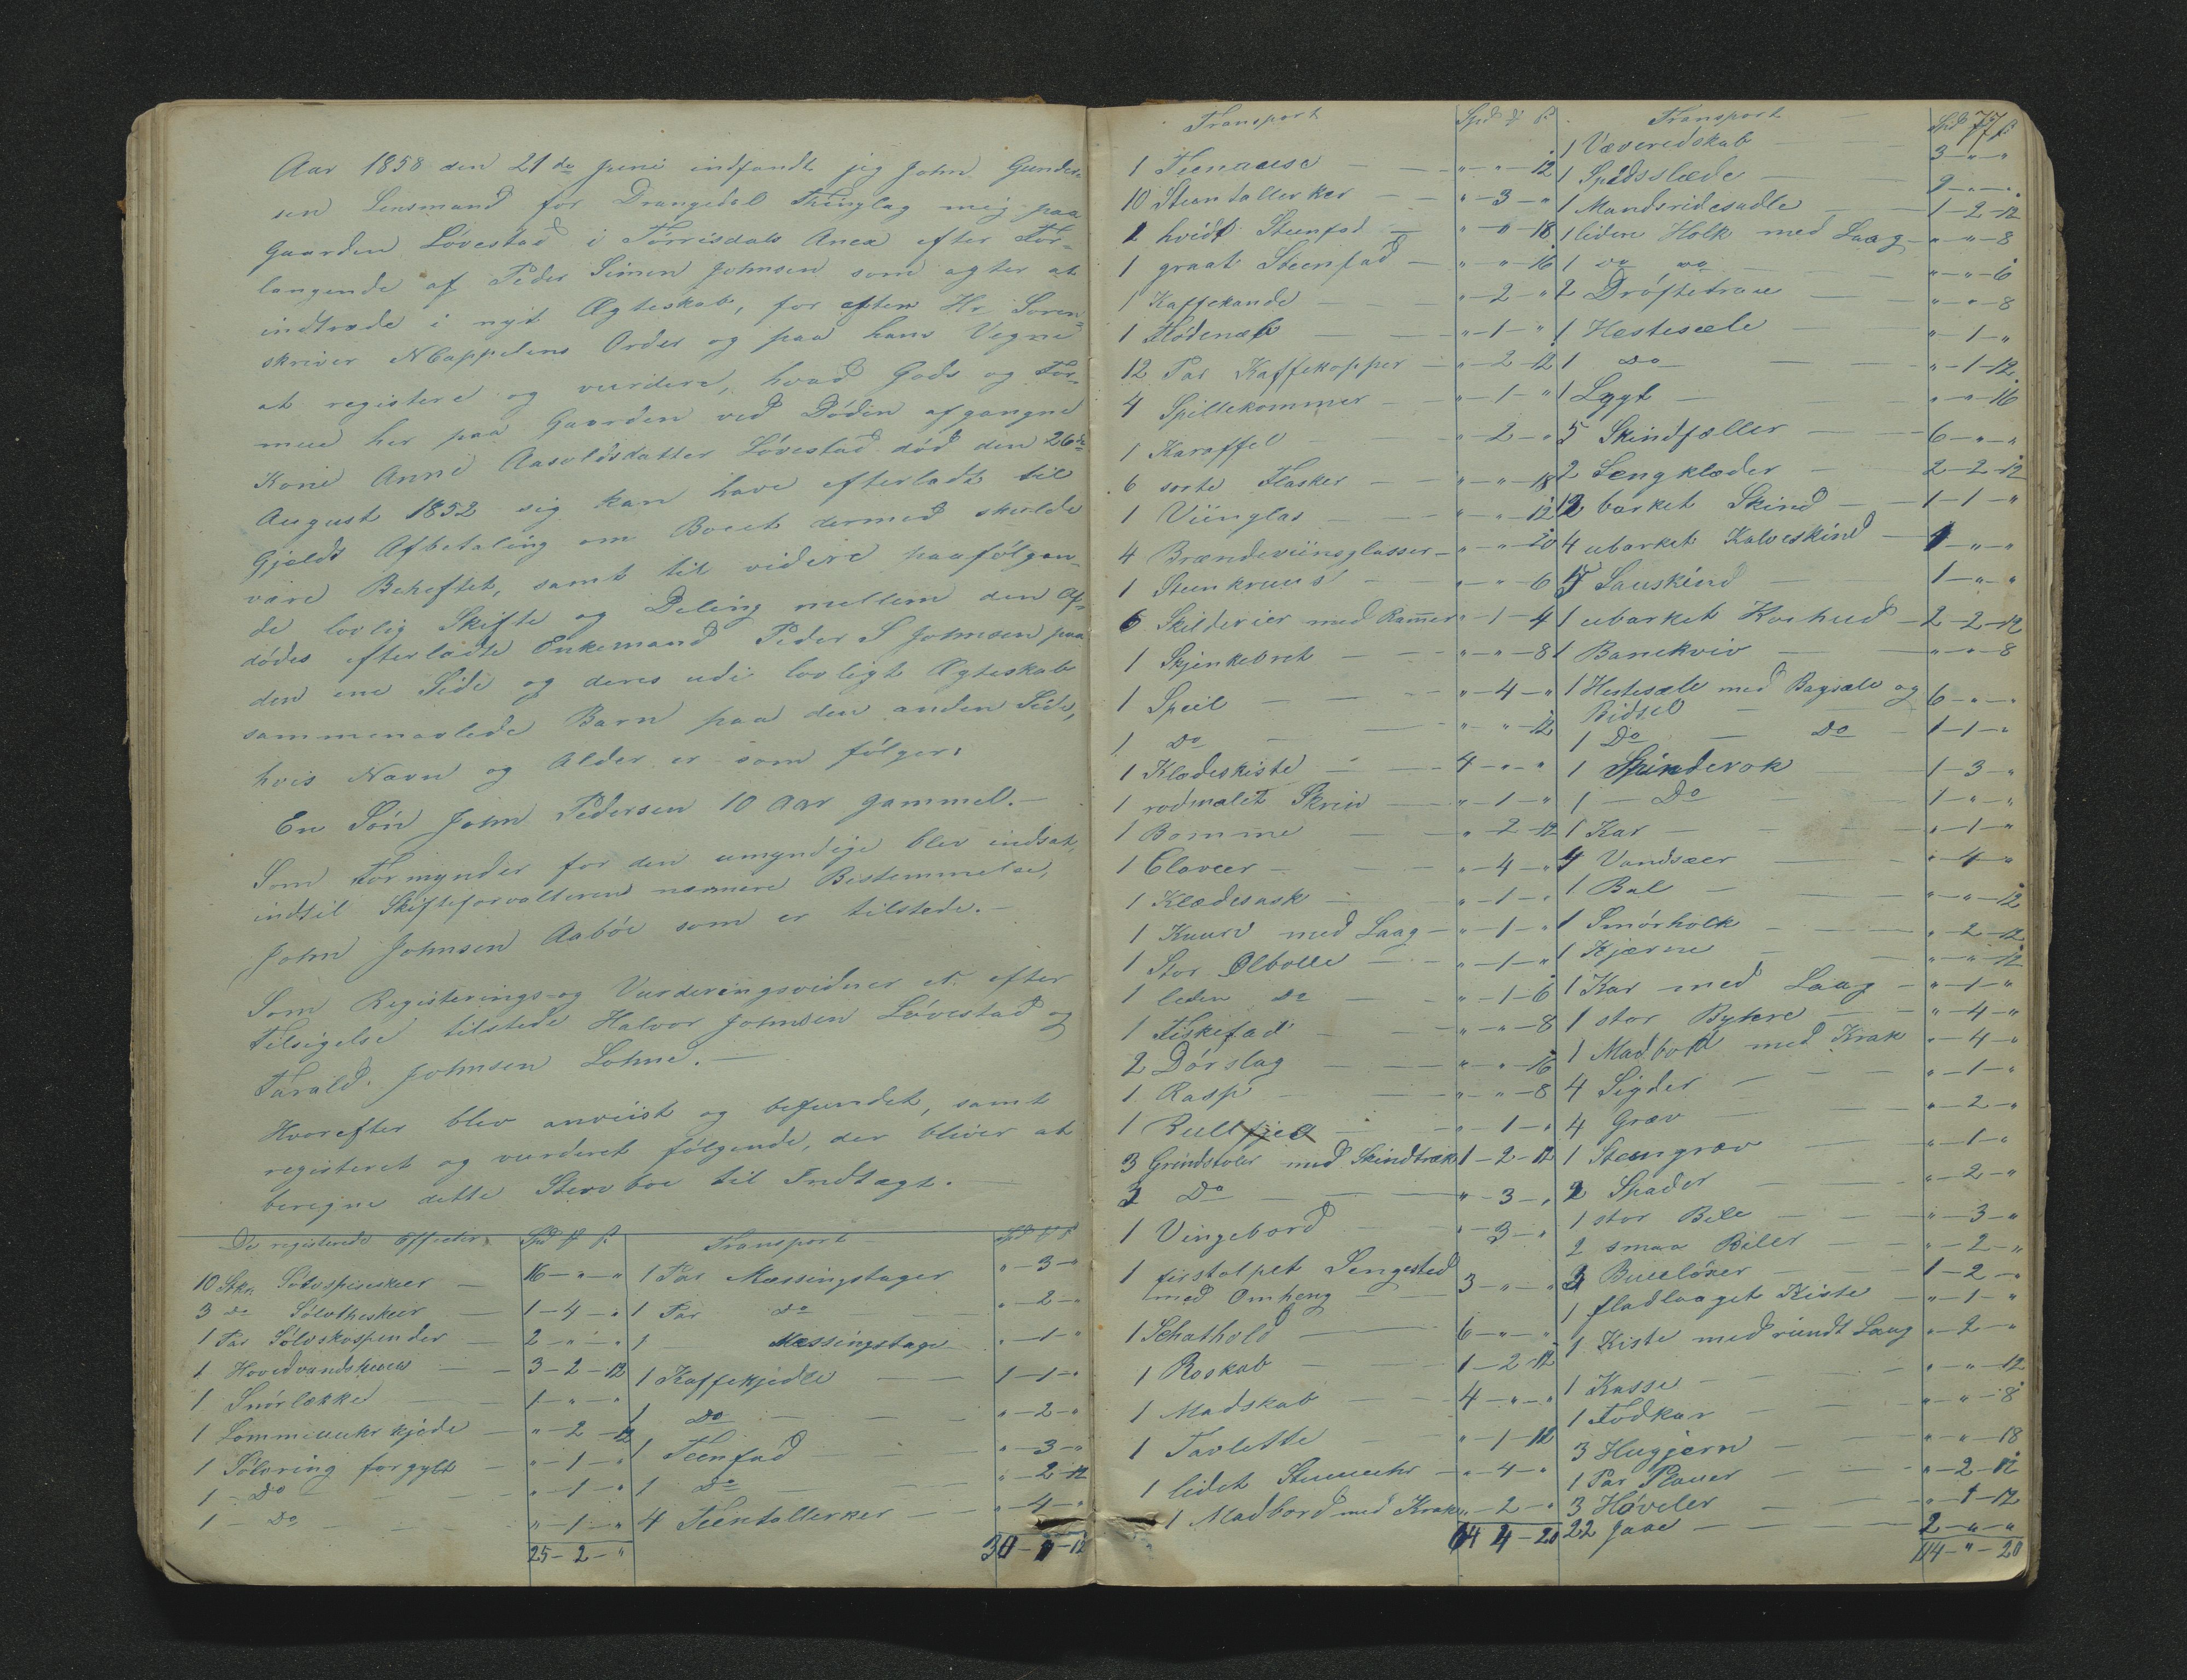 Aar 1858 den 21de Juni indfandt jeg John Gunder-
sen Lensmand for Drangedal Thinglag mig paa
Gaarden Lövestad i Törrisdals Anex efter For-
langende af Peder Simen Johnsen som agter at
indtræde i nyt Ægteskab, for efter Hr Soren-
skriver NCappelens Order og paa hans Vegne
at registere og vurdere, hvad Gods og For-
mue her paa Gaarden ved Döden afgangne
Kone Anne Aasoldsdatter Lövestad död den 26de
August 1852 sig kan have efterladt til
Gjelds Afbetaling om Boeet dermed skulde
være Beheftet, samt til videre paafölgen-
de lovlig Skifte og Deling mellem den Af-
dödes efterladte Enkemand Peder S Johnsen paa
den ene Side og deres udi lovligt Ægteskab
sammenavlede Barn paa den anden Side,
hvis Navn og Alder er som fölger:
En Sön John Pedersen 10 Aar gammel.-
Som Formynder for den umyndige blev indsat,
indtil Skifteforvalterens nærmere Bestemmelse,
John Johnsen Aaböe som er tilstede.-
Som Registerings-og Vurderingsvidner er efter
Tilsigelse tilstede Halvor Johnsen Lövestad og
Tarald Johnsen Lohne.-
Hvorefter blev anviist og befundet, samt
registeret og vurderet fölgende, der bliver at
beregne dette Stervboe til Indtægt.-
De registerede Effecter Spd
10 Stkr. Sölvspiseskeer 16-"-"
3 do Sölvtheskeer 1-4-"
1 Par Sölvskospender 2-"-"
1 Hovedvandshuus 3-2-12
1 Snörlække 1-"-"
1 Lommeuuhr kjede "-2-12
1 Sölvring forgylt "-1-"
1 - Do "-1-"
1 - Do "-1-"
25-2-"
Transport
1 Par Messingstager "-3-"
1 Par do "-2-"
1 Messingstage "-1-"
1 Kaffekjedle 1-1-"
1 Do "-2-"
1 Teenfad "-3-"
1 Do "-2-12
4 Teentallerker "-4-"
Transport Spd
1 "-"-12
10 Steentallerker "-3-"
1 hvidt Steenfad "-"-18
1 graat Steenfad "-"-16
1 Kaffekande "-2-"
1 Flödenæb "-1-"
12 Par Kaffekopper "-2-12
4 Spillekommer "-1-"
1 Karaffel "-2-"
6 sorte Flasker "-"-18
1 Viinglas "-"-12
4 Brændeviinsglasser "-"-20
1 Steenkruus "-"-6
6 Skilderier med Ramer "-1-4
1 Skjenkebret "-"-8
1 Speil "-4-"
1 do "-"-12
1 Klædeskiste 4-"-"
1 rødmalet Skrin "-1-"
1 Bomme "-2-12
1 Claveer "-4-"
1 Klædesask "-1-"
1 Kuurv med Laag "-1-"
1 Stor Ølbolle "-1-"
1 leden do "-1-6
1 Fiskefad "-"-8
2 Dörslag "-"-16
1 Rasp "-"-8
1 "-1-"
3 Grindstoler med Skindtræk 1-2-12
3 Do "-3-"
1 Vingebord "-3-"
1 firstolpet Sengested
med Omheng 3-"-"
1 Schathold 6-"-"
1 Roskab 1-2-12
1 Madskab 4-"-"
1 Tavlette "-1-12
1 lidet Stueuuhr "-4-"
1 Madbord med Krak "-2-"
64 4-20
Transport 77
1 Væveredskab 3-"-"
1 Spidsslæde 9-"-"
1 Mandsridesadle 1-2-12
1 liden Holk med Laag "-"-8
1 do do "-"-6
2 Dröftetrau "-"-8
1 Hestesæle "-1-"
1 do "-1-12
1 Lygt "-"-16
5 Skindfeller 6-"-"
2 Sengklæder 2-2-12
2 barket Skind 1-1-"
4 ubarket Kalveskind 1-"-"
Sauskind 1-"-"
1 ubarket Kuehud 2-2-12
1 "-"-8
1 Hestesæle med Bagsæle og
Bidsel 6-"-"
1 Do Do 1-1-"
1 Spinderok 1-3-"
1 - Do 1-"-"
1 Kar "-1-"
4 Vandsæer "-4-"
1 Bal "-"-12
1 Smörholk "-2-12
1 Kjærne "-"-12
1 Kar med Laag "-1-"
1 stor Bykre "-4-"
1 Madbord med Krak "-4-"
4 Sigder "-1-"
4 Græv "-2-"
1 Steengræv "-1-"
2 Spader "-2-"
1 stor Bile "-3-"
2 smaa Biler "-2-"
3 Bueelöxer 1-2-"
1 fladlaaget Kiste "-1-"
1 Kiste med rundt Laag "-2-"
1 Kasse "-"-12
1 Fodkar "-"-8
3 Hugjern "-"-18
1 Par Plauer "-2-12
3 Høveler "-1-12
22 2-"-"
114-"-20